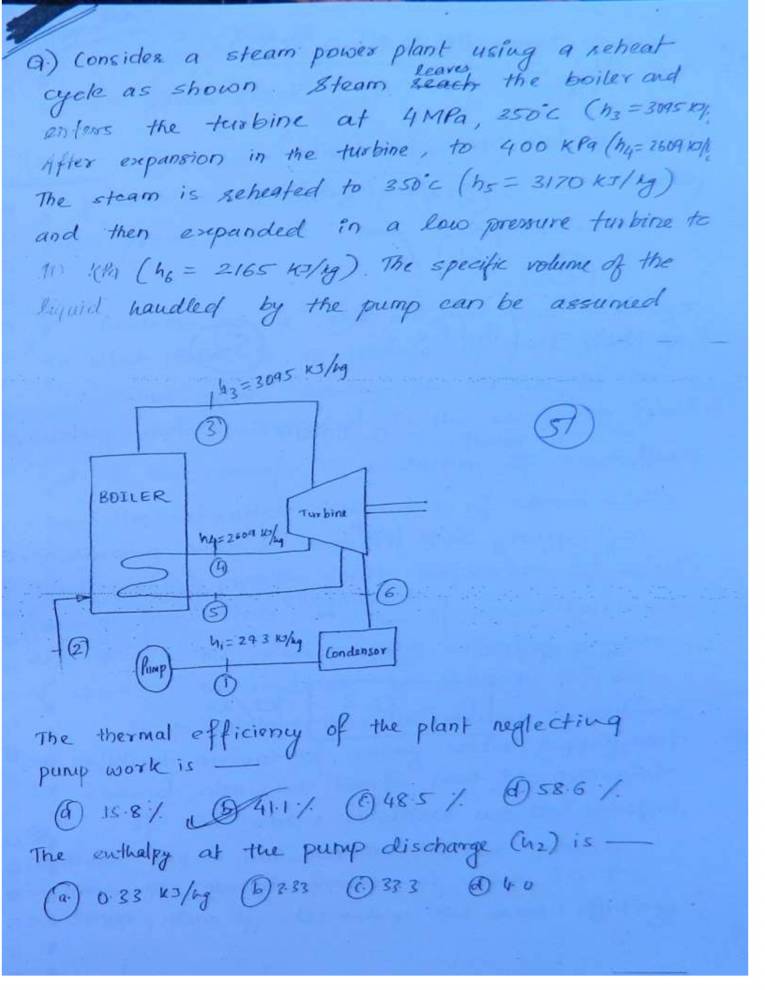 Q.) Consider a steam power plant using a reheat
cycle as shown. Steam leaves reach the boiler and
enters the turbine at 4MPa, 350°C (h3 = 3095 KJ/
After expansion in the turbine, to 400 KPa (h4 = 2609 KJ/k
The steam is reheated to 350°C (h5 = 3170 KJ/kg)
and then expanded in a low pressure turbine to
10 KPa (h6 = 2165 KJ/kg). The specific volume of the
liquid handled by the pump can be assumed
h3 = 3095 KJ/kg
3
51
BOILER
Turbine
h4 = 2609 KJ/kg
4
5
6
2
h1 = 29.3 KJ/kg
Condensor
Pump
1
The thermal efficiency of the plant neglecting
pump work is —
(a) 15.8% (b) 41.1% (c) 48.5 % (d) 58.6 %.
The enthalpy at the pump discharge (h2) is —
(a.) 0.33 KJ/kg (b) 3.33 (c) 33.3 (d) 4.0